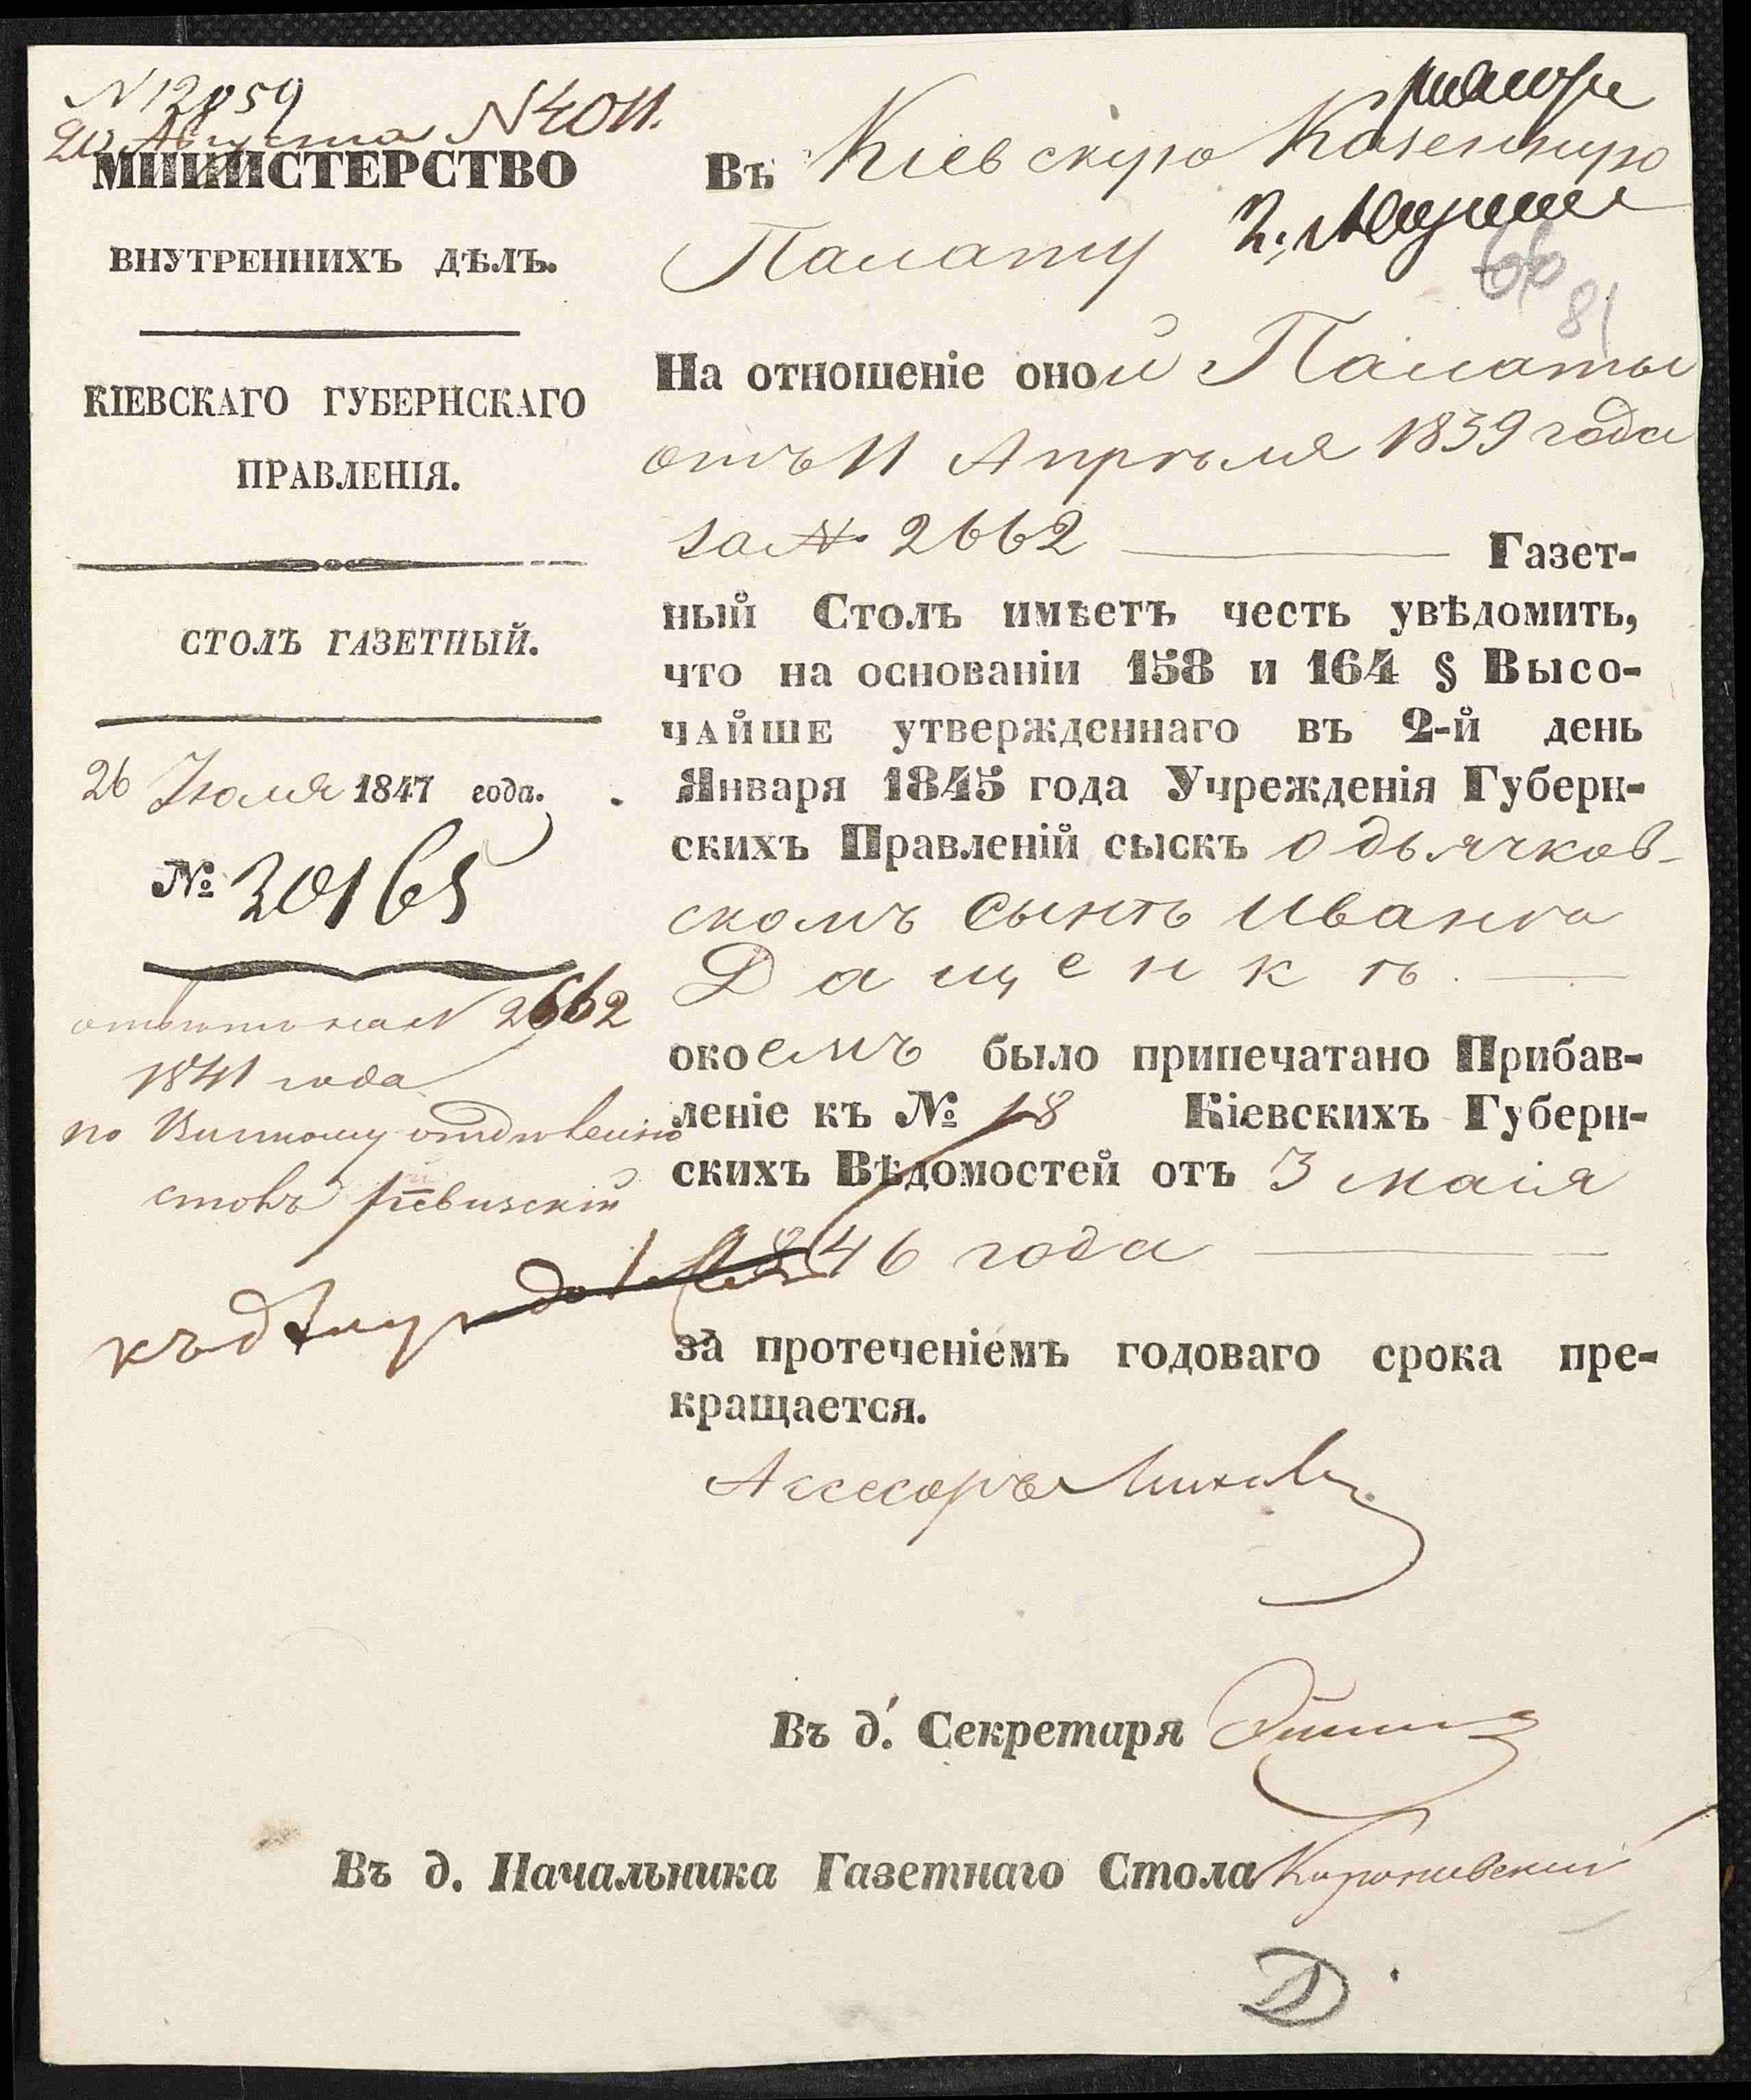 N 12859
20 Августа N 4011.
МИНИСТЕРСТВО
ВНУТРЕННИХЪ ДѢЛЪ.
КІЕВСКАГО ГУБЕРНСКАГО
ПРАВЛЕНІЯ.
СТОЛЪ ГАЗЕТНЫЙ.
26 Іюля 1847 года.
№ 20165
2662
1841 года
по отдѣленію
столъ
къ дѣлу
Въ Кіевскую Казенную
Палату 2. Августа
66
81
На отношеніе оной Палаты
отъ 11 Апрѣля 1839 года
за № 2662 Газет-
ный Столъ имѣетъ честь увѣдомить,
что на основаніи 158 и 164 § Высо-
ЧАЙШЕ утвержденнаго въ 2-й день
Января 1845 года Учрежденія Губерн-
скихъ Правленій сыскъ о дьячков-
скомъ сынѣ Иванѣ
Дащенкѣ.
окоемъ было припечатано Прибав-
леніе къ № 18 Кіевскихъ Губерн-
скихъ Вѣдомостей отъ 3 маія
1846 года
за протеченіемъ годоваго срока пре-
кращается.
Ассесоръ
Въ д. Секретаря
Въ д. Начальника Газетнаго Стола
D